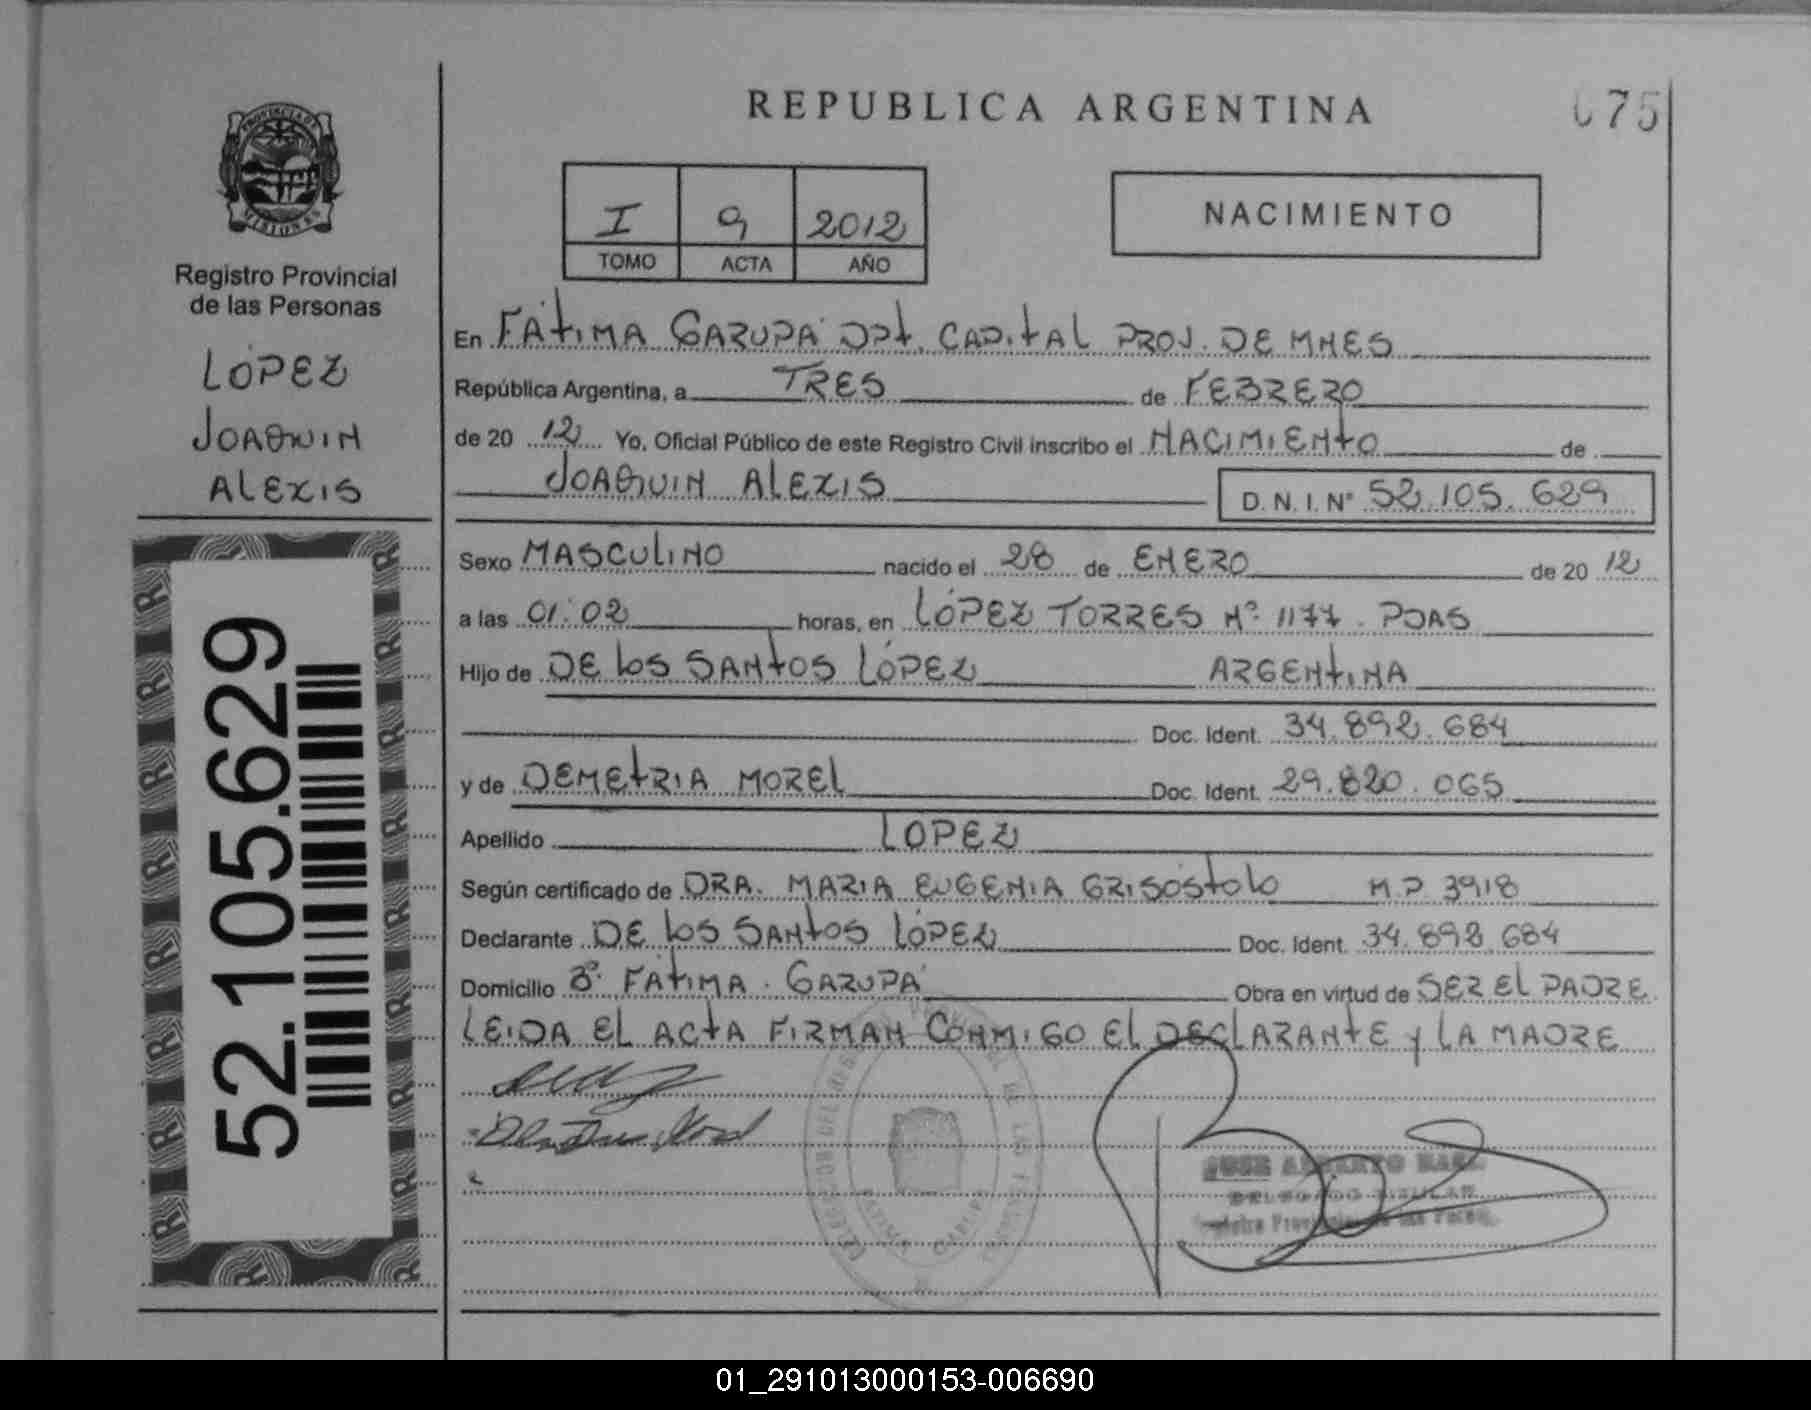 REPUBLICA ARGENTINA
075
PROVINCIA DE
MISIONES
Registro Provincial
de las Personas
LÓPEZ
JOAQUIN
ALEXIS
52.105.629
I 9 2012
TOMO ACTA AÑO
NACIMIENTO
En FÁTIMA GARUPÁ DPT. CAPITAL PROV. DE MNES
República Argentina, a TRES de FEBRERO
de 20 12 Yo, Oficial Público de este Registro Civil inscribo el NACIMIENTO de
JOAQUIN ALEXIS D. N. I. N° 52.105.629
Sexo MASCULINO nacido el 28 de ENERO de 20 12
a las 01:02 horas, en LÓPEZ TORRES Nº 1177. PDAS
Hijo de DE LOS SANTOS LÓPEZ ARGENTINA
Doc. Ident. 34.892.684
y de DEMETRIA MOREL Doc. Ident. 29.820.065
Apellido LOPEZ
Según certificado de DRA. MARIA EUGENIA GRISÓSTOLO M.P. 3918
Declarante DE LOS SANTOS LÓPEZ Doc. Ident. 34.892.684
Domicilio Bº FÁTIMA. GARUPÁ Obra en virtud de SER EL PADRE
LEIDA EL ACTA FIRMAN CONMIGO EL DECLARANTE Y LA MADRE
DELEGADO TITULAR
01_291013000153-006690